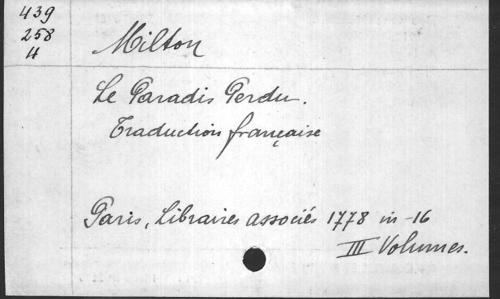 439
258
4
Milton
Le Paradis Perdu.
Traduction française
Paris, Libraires associés 1778 in-16
III Volumes.